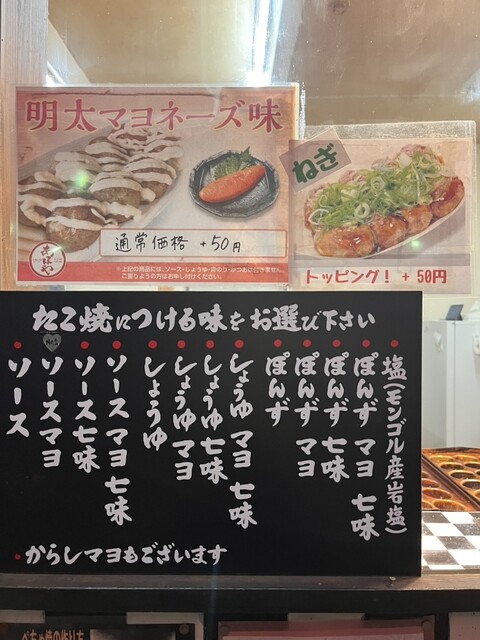 明太マヨネーズ味
通常価格 +50円
あほや
※上記の商品には、ソース・しょうゆ・青のり・かつお
ご要りようの方はお申し付けください。
ねぎ
トッピング！ + 50円
たこ焼につける味をお選び下さい
塩(モンゴル産岩塩)
ぽんず マヨ 七味
ぽんず 七味
ぽんず マヨ
ぽんず
しょうゆ マヨ 七味
しょうゆ 七味
しょうゆ マヨ
しょうゆ
ソース マヨ 七味
ソース 七味
ソース マヨ
ソース
からしマヨもございます